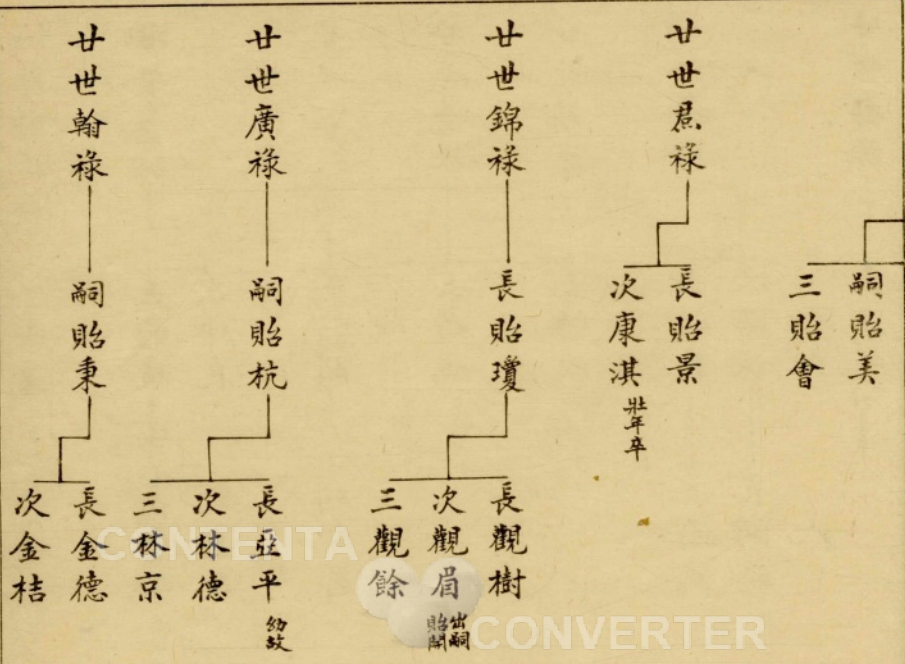 嗣貽美
三貽會
廿世焄祿
長貽景
次康淇 壯年卒
廿世錦祿
長貽瓊
長觀樹
次觀眉 出嗣貽開
三觀餘
廿世廣祿
嗣貽杭
長亞平 幼故
次林德
三林京
廿世翰祿
嗣貽秉
長金德
次金桔
CONTENTA
CONVERTER